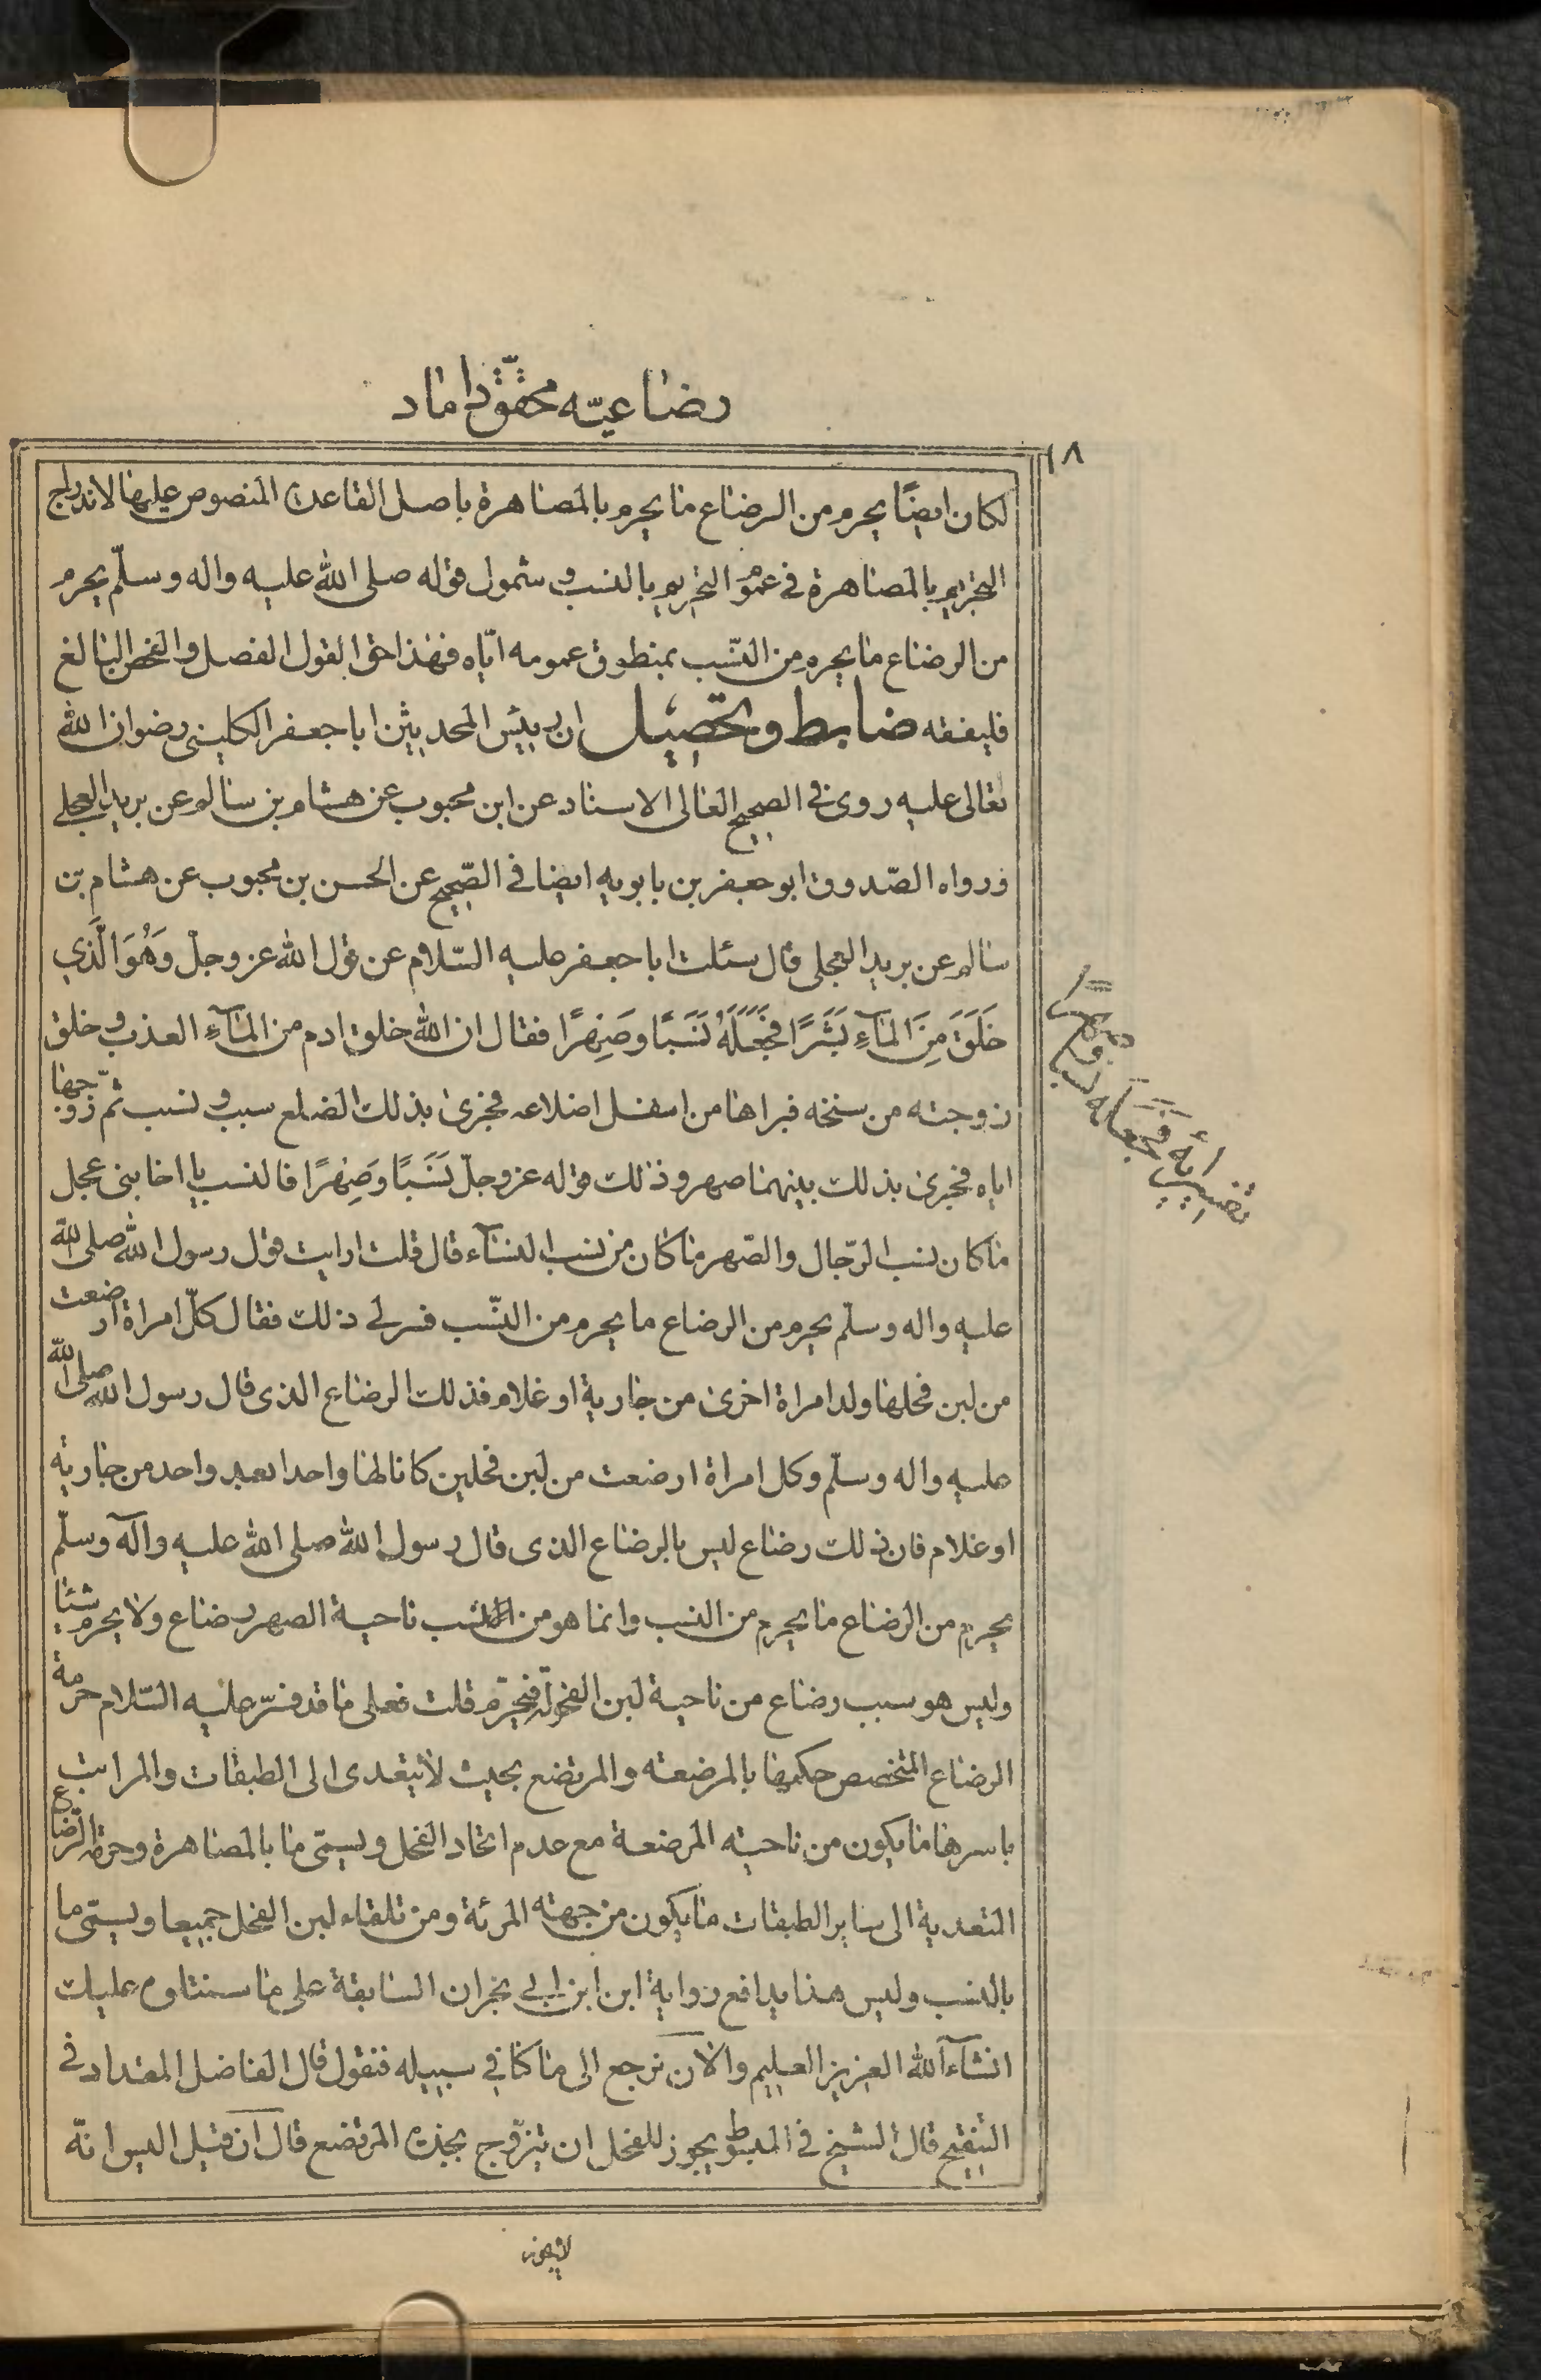 رضاعیّه محقّق داماد
١٨
لكان ايضًا يحرم من الرضاع ما يحرم بالمصاهرة باصل القاعدة المنصوص عليها لاندراج
التحريم بالمصاهرة في عموم التحريم بالنسب وشمول قوله صلى الله عليه واله وسلّم يحرم
من الرضاع ما يحرم من النّسب بمنطوق عمومه ايّاه فهذا حق القول الفصل والفحص البالغ
فليفقه ضابط وتحصيل ان رييس المحديثن ابا جعفر الكليني رضوان الله
تعالى عليه روى في الصحيح العالى الاسناد عن ابن محبوب عن هشام بن سالم عن بريد العجلى
ورواه الصّدوق ابو جعفر بن بابويه ايضا في الصّحيح عن الحسن بن محبوب عن هشام بن
سالم عن بريد العجلى قال سئلت ابا جعفر عليه السّلام عن قول الله عز وجلّ وَهُوَ الَّذي
خَلَقَ مِنَ المَآءِ بَشَرًا فَجَعَلَهُ نَسَبًا وصَهِرًا فقال ان الله خلق ادم من المآءِ العذب و خلق
زوجته من سنخه فبراها من اسفل اضلاعه فجرى بذلك الضلع سبب و نسب ثمّ زوّجها
اياه فجرى بذلك بينهما صهر وذلك قوله عز وجلّ نَسَبًا وَصَهِرًا فالنسب يا اخا بنى عجل
ما كان نسب الرّجال والصّهر ما كان من نسب النسآء قال قلت ارايت قول رسول الله صلى الله
عليه واله وسلّم يحرم من الرضاع ما يحرم من النّسب فسر لى ذلك فقال كلّ امراة ارضعت
من لبن فحلها ولد امراة اخرى من جارية او غلام فذلك الرضاع الذى قال رسول الله صلى الله
عليه واله وسلّم وكل امراة ارضعت من لبن فحلين كانا لها واحدا بعد واحد من جارية
او غلام فان ذلك رضاع ليس بالرضاع الذى قال رسول الله صلى الله عليه وآله وسلّم
يحرم من الرضاع ما يحرم من النسب وانما هو من النسب ناحية الصهر رضاع ولا يحرم شئا
وليس هو سبب رضاع من ناحية لبن الفحولة فيحرّم قلت فعلى ما قد فسّر عليه السّلام حرمة
الرضاع المتخصص حكمها بالمرضعة والمرتضع بحيث لا يتعدى الى الطبقات والمراتب
باسرها ما يكون من ناحية المرضعة مع عدم اتحاد الفحل ويسمّى ما بالمصاهرة وحرمة الرّضاع
المتعدية الى ساير الطبقات ما يكون من جهة المرئة ومن تلقاء لبن الفحل جميعا ويسمّى ما
بالنسب وليس هذا يدافع رواية ابن ابن ابى نجران السابقة على ما سنتلوه عليك
انشآء الله العزيز العليم والآن نرجع الى ما كنا في سبيله فنقول قال الفاضل المقداد في
التنقيح قال الشيخ في المبسوط يجوز للفحل ان يتزّوج بجدة المرتضع قال ان قيل اليس انه
لا يجوز